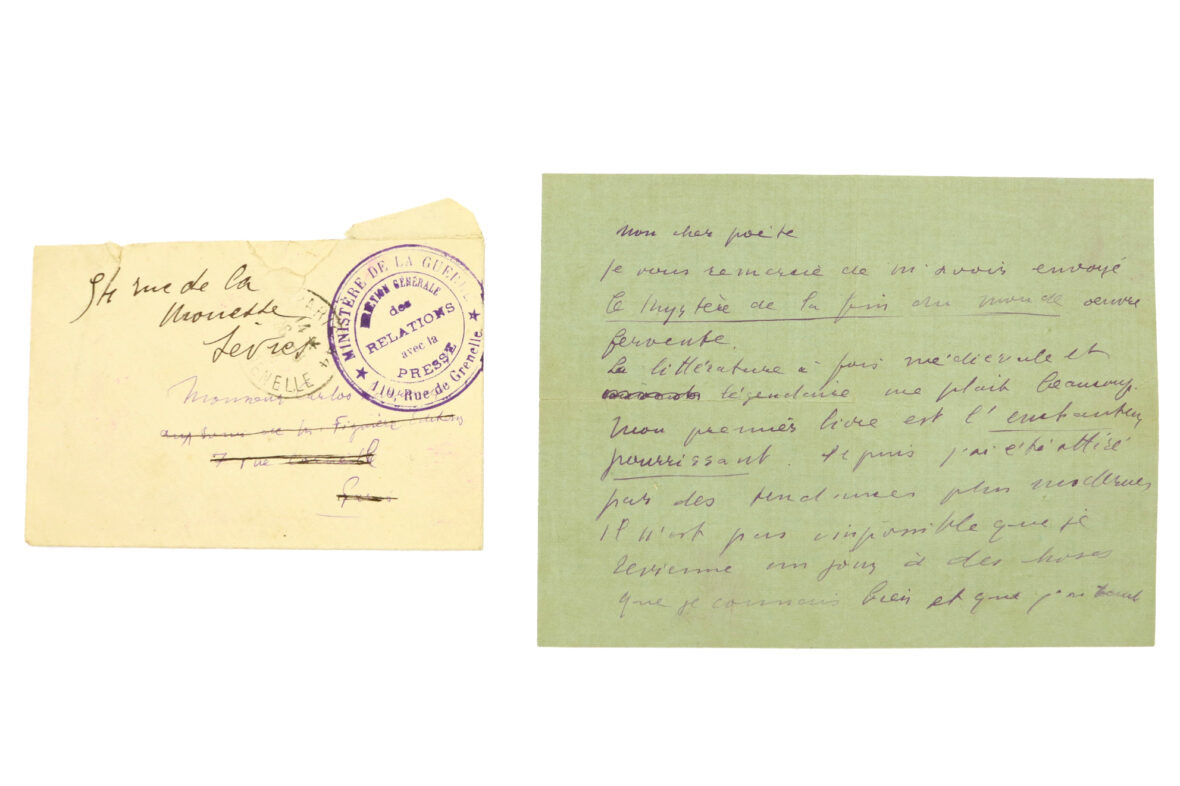 94 rue de la
Monesse
Sèvres
MINISTÈRE DE LA GUERRE
GÉNÉRALE
des
RELATIONS
avec la
PRESSE
110, Rue de Grenelle
GRENELLE
Monsieur Carlos
aux soins de M. Figuière
7 rue Corneille
Paris
Mon cher poète
Je vous remercie de m'avoir envoyé
le Mystère de la fin du monde oeuvre
fervente.
La littérature à fois médievale et
légendaire me plait beaucoup.
Mon premier livre est l'enchanteur
pourrissant. Depuis j'ai été attiré
par des tendances plus modernes
Il n'est pas impossible que je
revienne un jour à des choses
que je connais bien et que j'ai tant